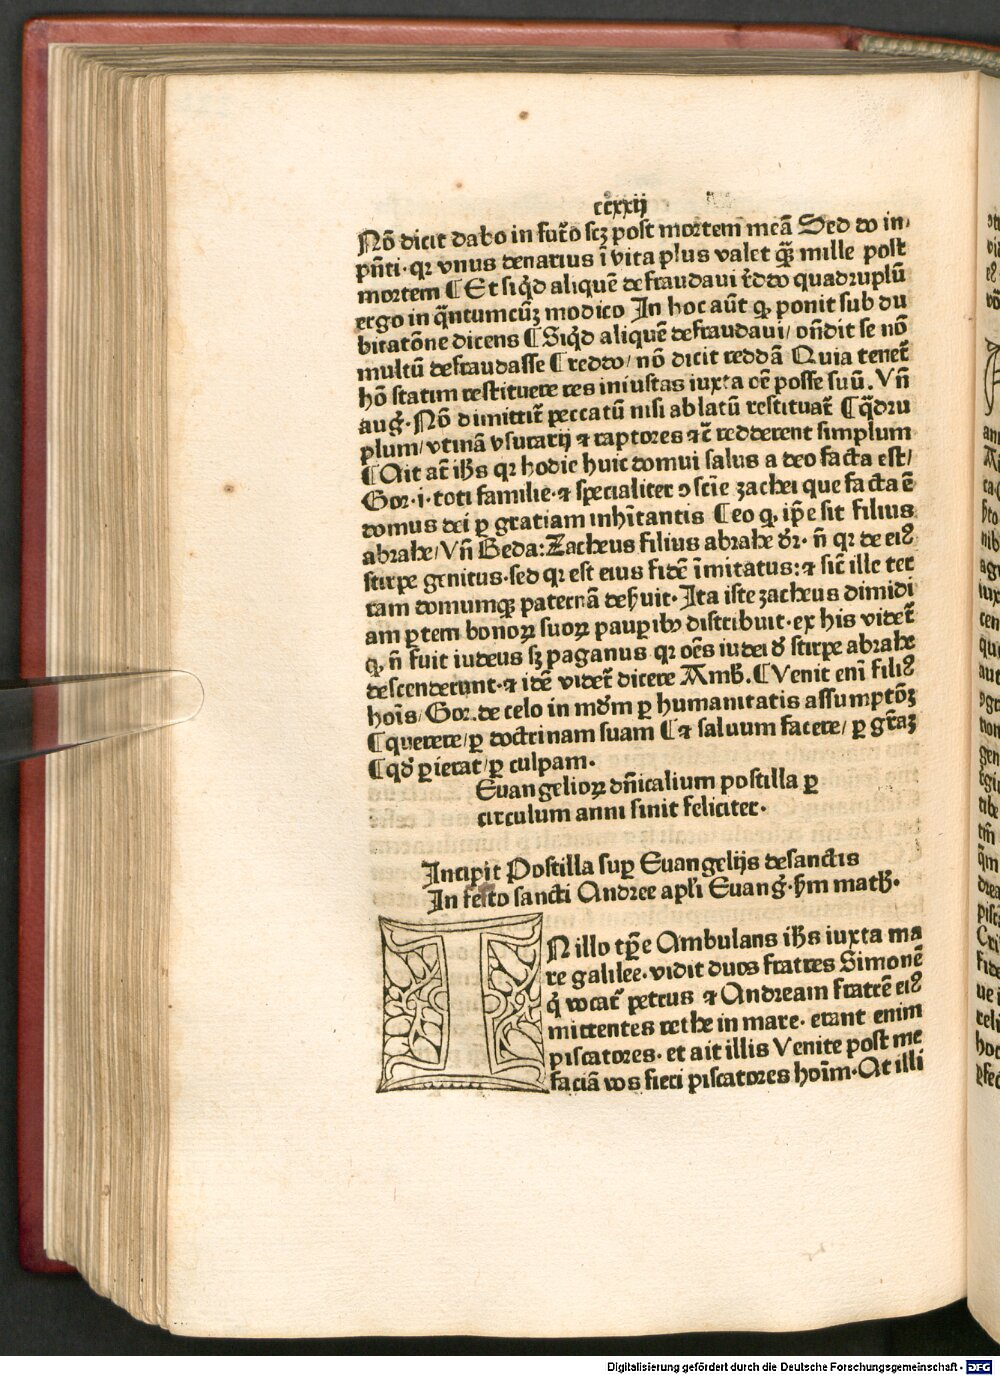 ccxxij
Nō dicit dabo in futo͛o scꝫ post mortem meā Sed do in-
pn̄ti· qꝛ vnus denarius ī vita plus valet qꝫ̄ mille post
mortem ¶ Et siqͥd aliquē defraudaui r̄ddo quadruplū
ergo in qͣntumcūꝫ modico In hoc aūt ꝙ ponit sub du
bitatōne dicens ¶ Siqͥd aliquē defraudaui/ on̄dit se nō
multū defraudasse ¶ reddo/ nō dicit reddā Quia tenet᷑
hō statim restituere res iniustas iuxta oē posse suū. Vn̄
aug̾· Nō dimittit᷑ peccatū nisi ablatū restituat᷑ ¶ qͣdru
plum/ vtinā vsurarij ⁊ raptores ⁊c̄ redderent simplum
¶ Ait at̄ ih̄s qꝛ hodie huic domui salus a deo facta est/
Gor· i· toti familie· ⁊ specialiter ꝯscīe zachei que facta ē
domus dei ꝑ gratiam inhītantis ¶ eo ꝙ ip̄e sit filius
abrahe/ Vn̄ Beda: Zacheus filius abrahe dr̄· n̄ qꝛ de eiꝰ
stirpe genitus· sed qꝛ est eius fidē īmitatus: ⁊ sic̄ ille ter
ram domumqꝫ paternā deẜuit· Ita iste zacheus dimidi
am ꝑtem bonoꝝ suoꝝ pauꝑibꝰ distribuit· ex his videt᷑
ꝙ n̄ fuit iudeus sꝫ paganus qꝛ oēs iudei d̾ stirpe abrahe
descenderunt· ⁊ idē videt᷑ dicere Amb̄. ¶ Venit enī filiꝰ
hoīs/ Gor. de celo in mūdm ꝑ humanitatis assumptōꝫ
¶ querere/ ꝑ doctrinam suam ¶ ⁊ saluum facere/ ꝑ gr̄aꝫ
¶ qd̾ ꝑierat/ ꝑ culpam·
Euangelioꝝ dn̄icalium postilla ꝑ
circulum anni finit feliciter·
Incipit Postilla suꝑ Euangelijs de sanctis
In festo sancti Andree apl̄i Euang̾· ẜm math̄·
IN illo tꝑe Ambulans ih̄s iuxta ma
re galilee· vidit duos fratres Simonē
qͥ vocat᷑ petrus ⁊ Andream fratrē eiꝰ
mittentes rethe in mare· erant enim
piscatores· et ait illis Venite post me
faciā vos fieri piscatores hoīm· At illi
Digitalisierung gefördert durch die Deutsche Forschungsgemeinschaft - DFG